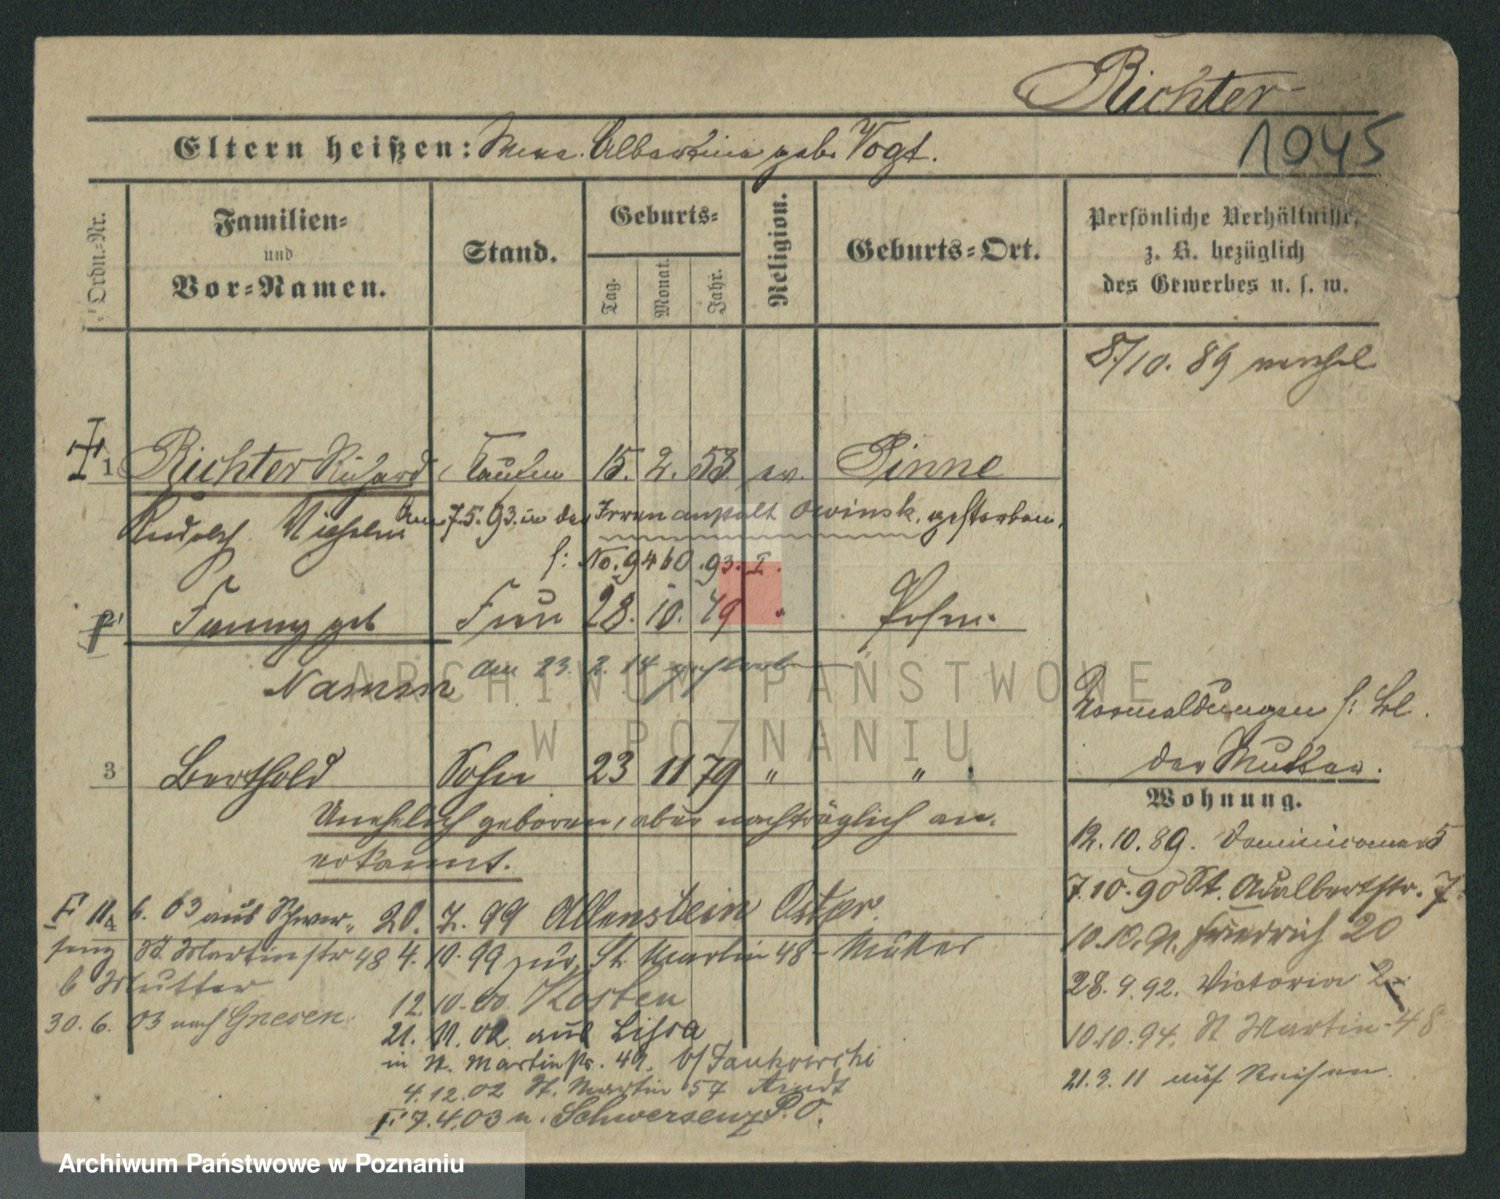 Richter
1045
Eltern heißen: Albertine geb. Vogt.
Ordn.-Nr.
Familien-
und
Vor-Namen.
Stand.
Geburts-
Tag.
Monat.
Jahr.
Religion.
Geburts-Ort.
Persönliche Verhältnisse,
z. B. bezüglich
des Gewerbes u. s. w.
8/10. 89
1 Richter Richard 15. 2. 53 ev. Pinne
Rudolf Wilhelm am 7.5.93. in der Irrenanstalt Owinsk. gestorben.
f: No. 9460.93. I.
Fanny geb Frau 28. 10. 49 " Posen.
Namen am 23. 2. 14 gestorben
Vermeldungen f: Bl.
der Mutter.
3 Berthold Sohn 23 11 79 " "
Wohnung.
Unehelich geboren, aber nachträglich an-
erkannt.
12. 10. 89. Dominicaner 5
7. 10. 90 St. Adalbertstr. 7.
10.10.91. Friedrich 20
28. 9. 92. Victoria 2
10.10.94. St Martin 48
21. 3. 11 auf Reisen
6. 03 aus Schwer-
senz St. Martinstr 48
b Mutter
30. 6. 03 nach Gnesen.
20. 7. 99 Allenstein Ostpr.
4. 10. 99 zur. St. Martin 48 - Mutter
12. 10. 00. Kosten
21. 11. 02. aus Lissa
in St. Martinstr. 49. b/Jankowski
4. 12. 02 St. Martin 57 Arndt
F. 7. 4. 03 n. Schwersenz P. O.
ARCHIWUM PAŃSTWOWE
W POZNANIU
Archiwum Państwowe w Poznaniu